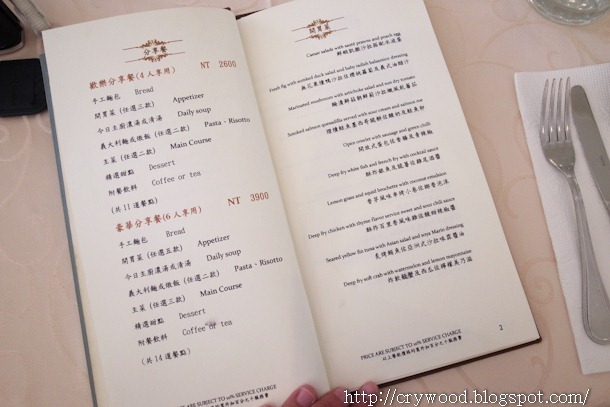 分享餐
歡樂分享餐(4人享用) NT 2600
手工麵包 Bread
開胃菜 (任選三款) Appetizer
今日主廚濃湯或清湯 Daily soup
義大利麵或燉飯 (任選二款) Pasta、Risotto
主菜 (任選二款) Main Course
精選甜點 Dessert
附餐飲料 Coffee or tea
(共11道餐點)
豪華分享餐(6人享用) NT 3900
手工麵包 Bread
開胃菜 (任選五款) Appetizer
今日主廚濃湯或清湯 Daily soup
義大利麵或燉飯 (任選二款) Pasta、Risotto
主菜 (任選三款) Main Course
精選甜點 Dessert
附餐飲料 Coffee or tea
(共14道餐點)
PRICE ARE SUBJECT TO 10% SERVICE CHARGE
以上餐飲價格均需外加百分之十服務費
開胃菜
Caesar salads with sauté prawns and poach egg
鮮蝦凱撒沙拉搭配水波蛋
Fresh fig with smoked duck salad and baby radish balsamico dressing
Marinated mushrooms with artichoke salad and sun dry tomato
Smoked salmon quesadilla served with sour cream and salmon roe
燻鮭鮭魚墨西哥薄餅佐酸奶及鮭魚卵
Open omelet with sausage and green chilli
開放式蛋包佐香腸及青辣椒
Deep fry white fish and french fry with cocktail sauce
酥炸鱈魚及脆薯佐雞尾酒醬
Lemon grass and squid brochette with coconut emulsion
香茅風味串烤小卷佐椰香泡沫
Deep fry chicken with thyme flavor service sweet and sour chili sauce
酥炸百里香風味雞佐酸甜辣椒醬
Seared yellow fin tuna with Asian salad and soya Marin dressing
炙烤鮪魚佐亞洲式沙拉味霖醬油
Deep fry soft crab with watermelon and lemon mayonnaise
炸軟殼蟹及西瓜佐檸檬美乃滋
PRICE ARE SUBJECT TO 10% SERVICE CHARGE
以上餐飲價格均需外加百分之十服務費
2
http://crywood.blogspot.com/